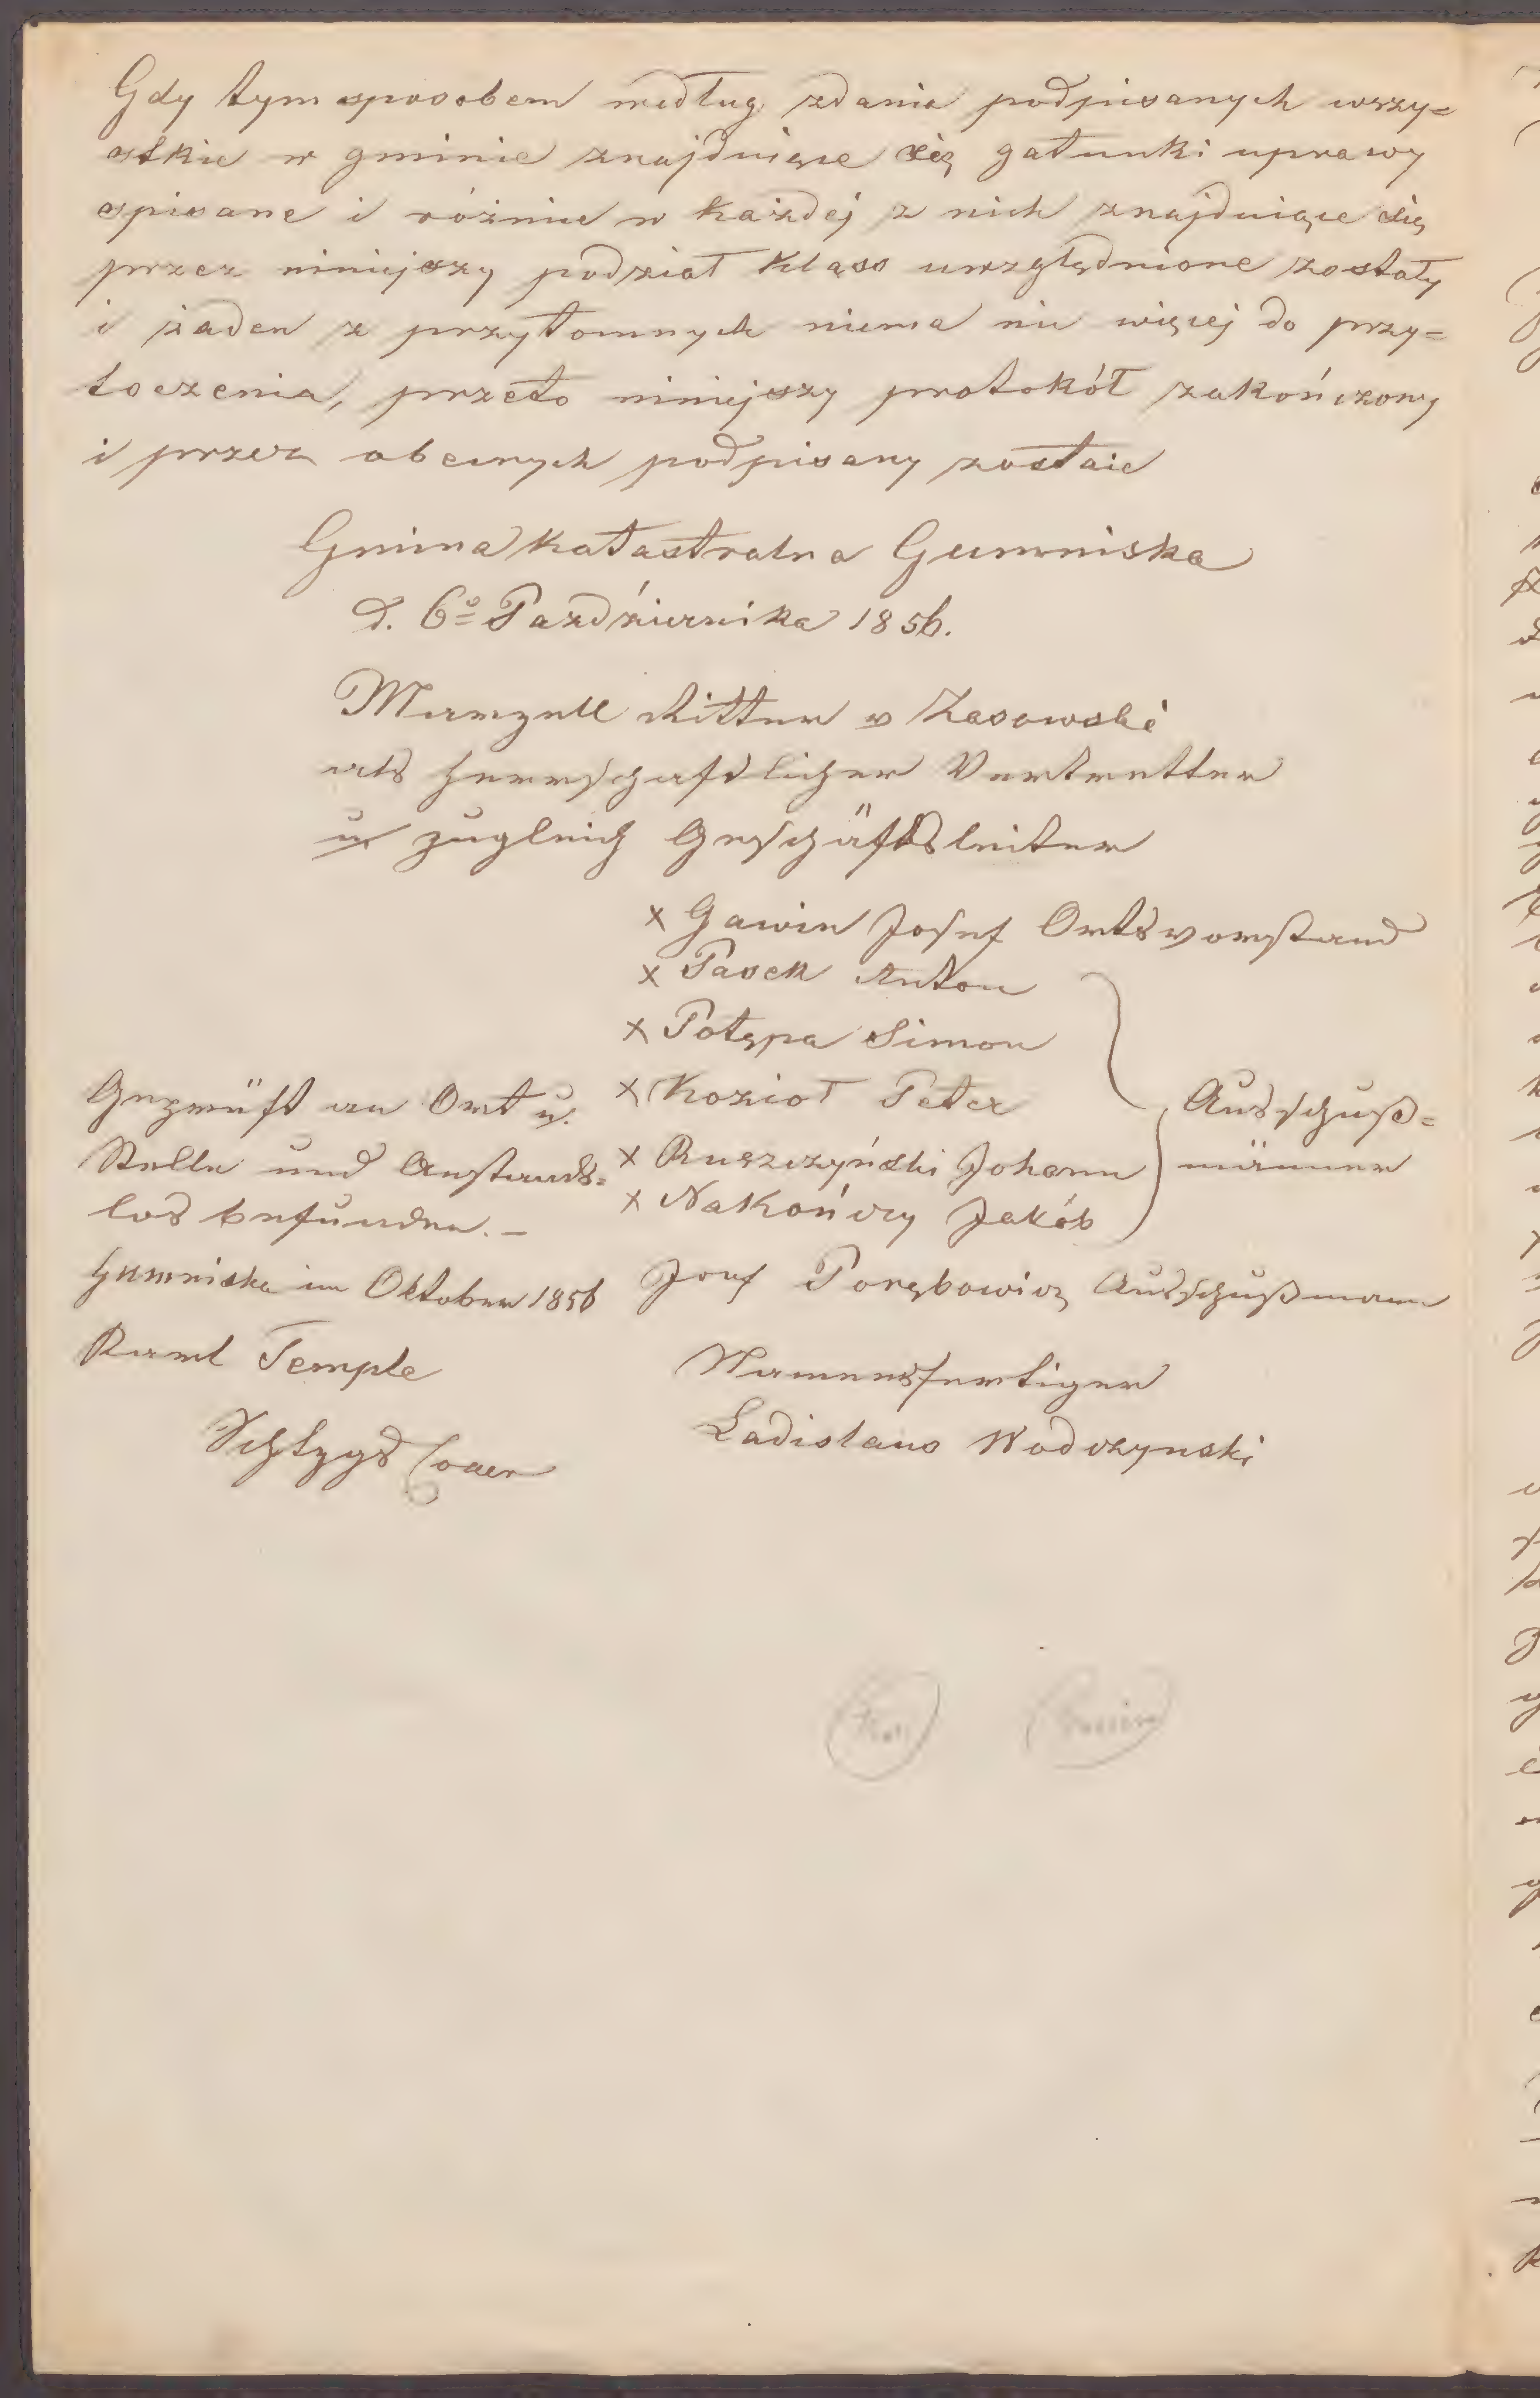 Gdy tym sposobem według zdania podpisanych wszy=
stkie w gminie znajduiące się gatunki uprawy
spisane i różnice w każdej z nich znajduiące się
przez niniejszy podział klass uwzględnione zostały
i żaden z przytomnych niema nic więcej do przy=
toczenia, przeto niniejszy protokół zakończony
i przez obecnych podpisany zostaie
Gmina katastralna Gumniska
d. 6º Października 1856.
Marzell Ritter v Zasowski
als herrschaftlicher Vertretter
u zugleich Geschäftsleiter
x Gawin Josef Ortsvorstand
x Pasek Anton
x Potępa Simon
x Kozioł Peter
x Ruszczyński Johann
x Nakończy Jakób
Ausschuß=
männer
Josef Porębowicz Ausschußmann
Namensfertiger
Ladislaus Wodczynski
Geprüft an Ort u.
Stelle und Anstands=
los befunden. –
Gumniska im Oktober 1856
Temple